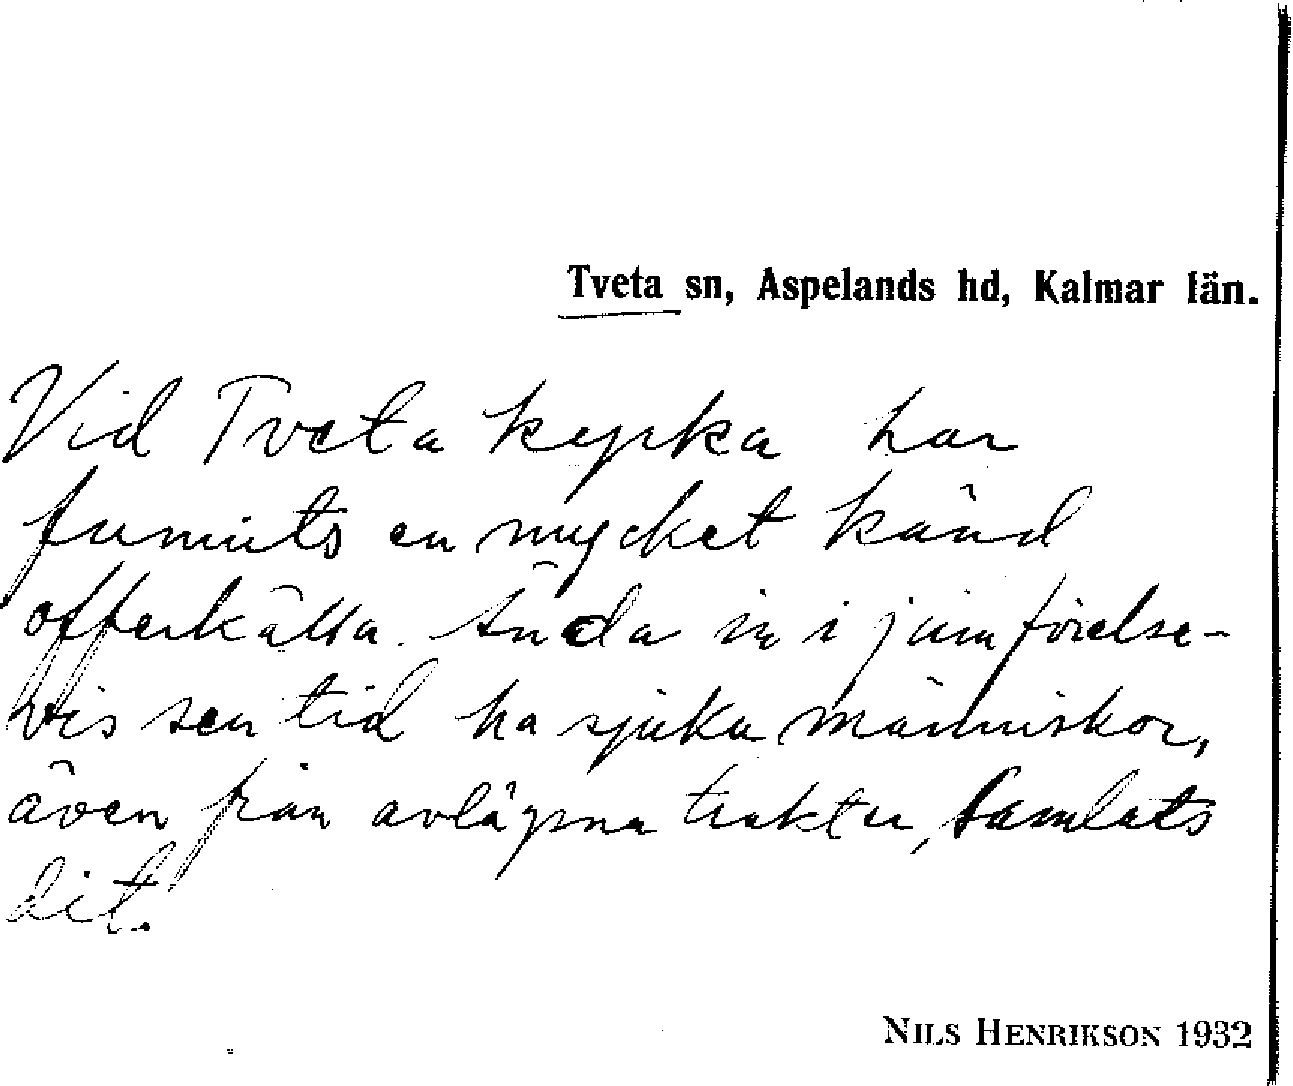 Tveta sn, Aspelands hd, Kalmar län.
Vid Tveta kyrka har
funnits en mycket känd
offerkälla. Ända in i jämförelse-
vis sen tid ha sjuka människor,
även från avlägsna trakter, samlats
dit.
NILS HENRIKSON 1932